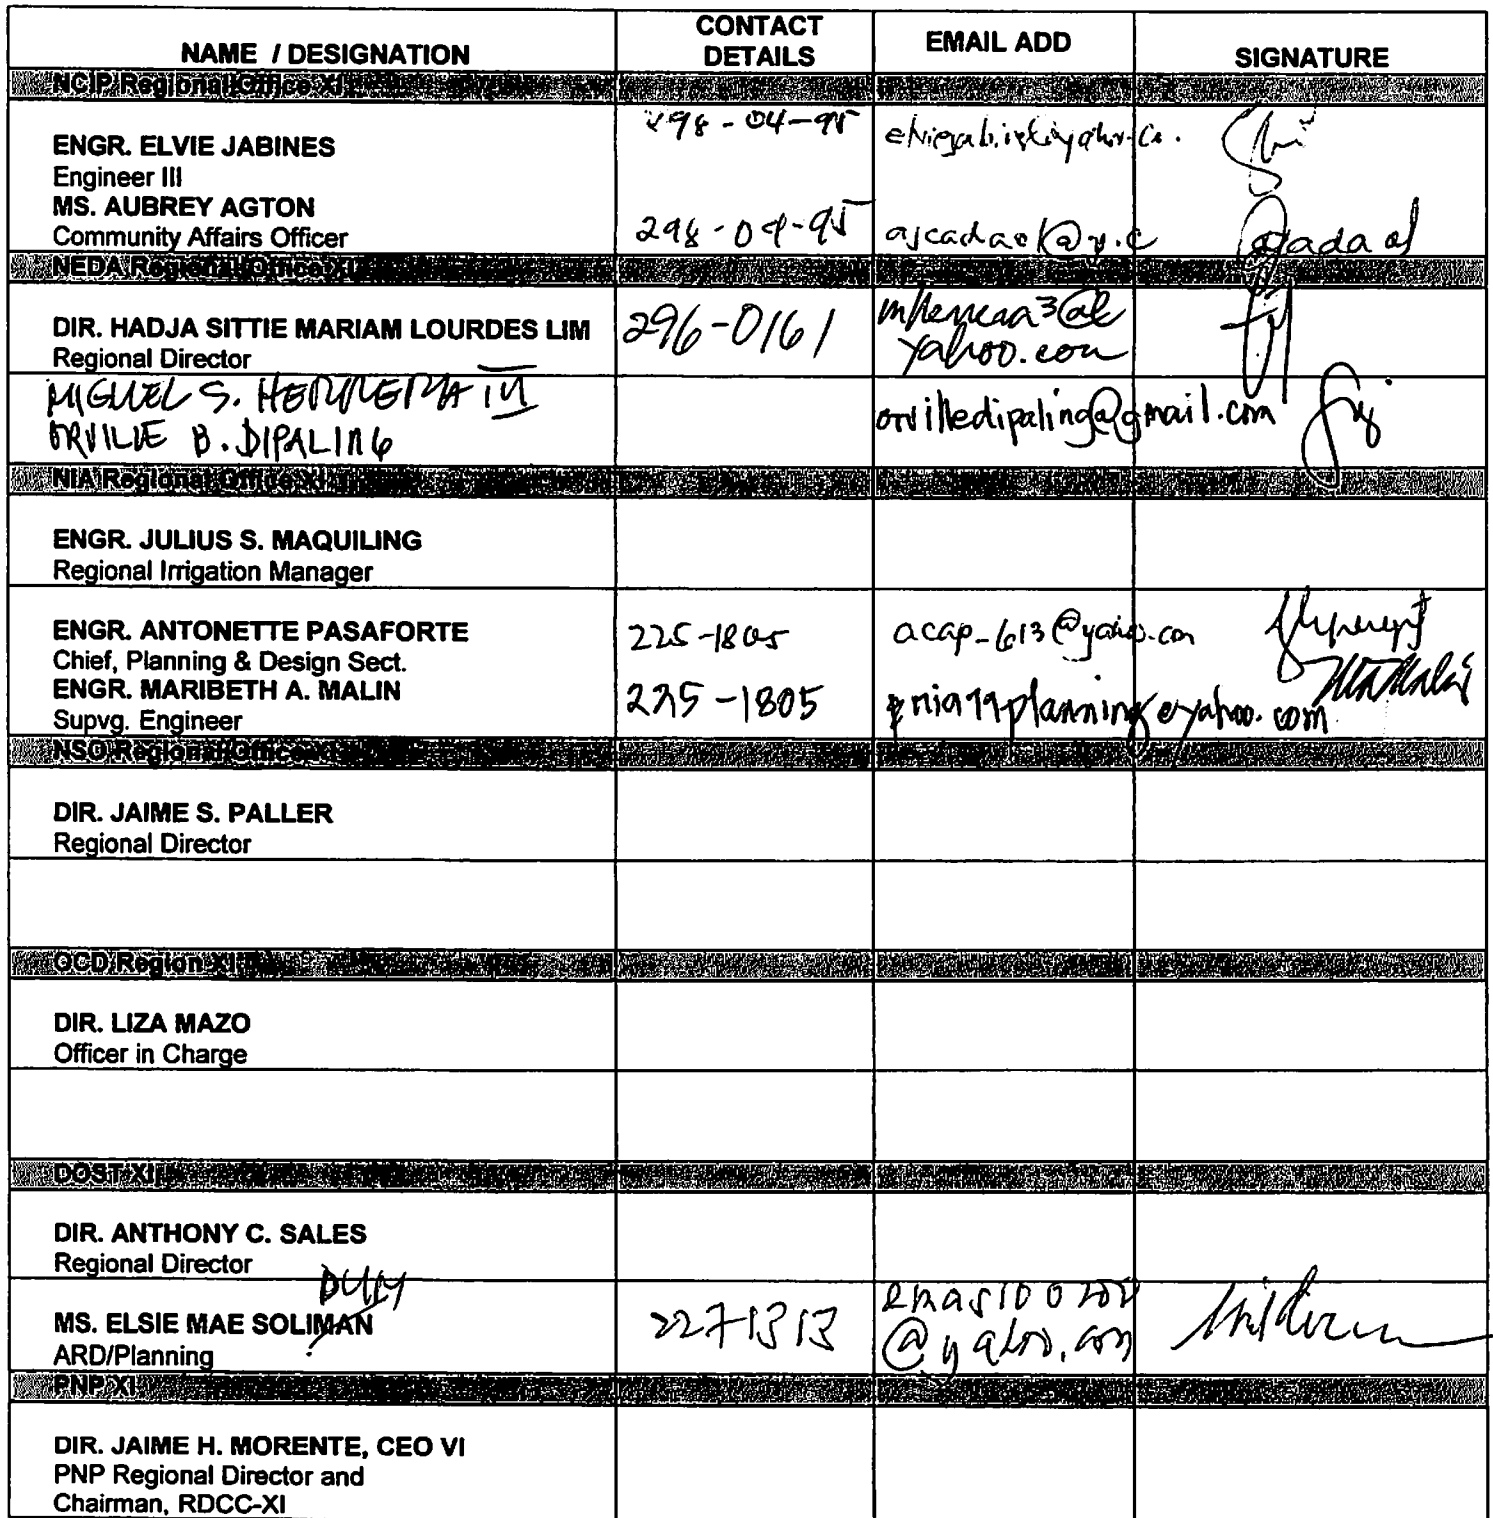 NAME / DESIGNATION
CONTACT DETAILS
EMAIL ADD
SIGNATURE
NCIP Regional Office XI
ENGR. ELVIE JABINES
Engineer III
298-04-95
MS. AUBREY AGTON
Community Affairs Officer
298-04-95
NEDA Regional Office XI
DIR. HADJA SITTIE MARIAM LOURDES LIM
Regional Director
296-0161
yahoo.com
MIGUEL S. HERRERA III
ORVILLE B. DIPALING
orvilledipaling@gmail.com
NIA Regional Office XI
ENGR. JULIUS S. MAQUILING
Regional Irrigation Manager
ENGR. ANTONETTE PASAFORTE
Chief, Planning & Design Sect.
225-1805
acap_613@yahoo.com
ENGR. MARIBETH A. MALIN
Supvg. Engineer
225-1805
NSO Regional Office XI
DIR. JAIME S. PALLER
Regional Director
OCD Region XI
DIR. LIZA MAZO
Officer in Charge
DOST XI
DIR. ANTHONY C. SALES
Regional Director
MS. ELSIE MAE SOLIMAN
ARD/Planning
227-1313
@yahoo.com
PNP XI
DIR. JAIME H. MORENTE, CEO VI
PNP Regional Director and
Chairman, RDCC-XI